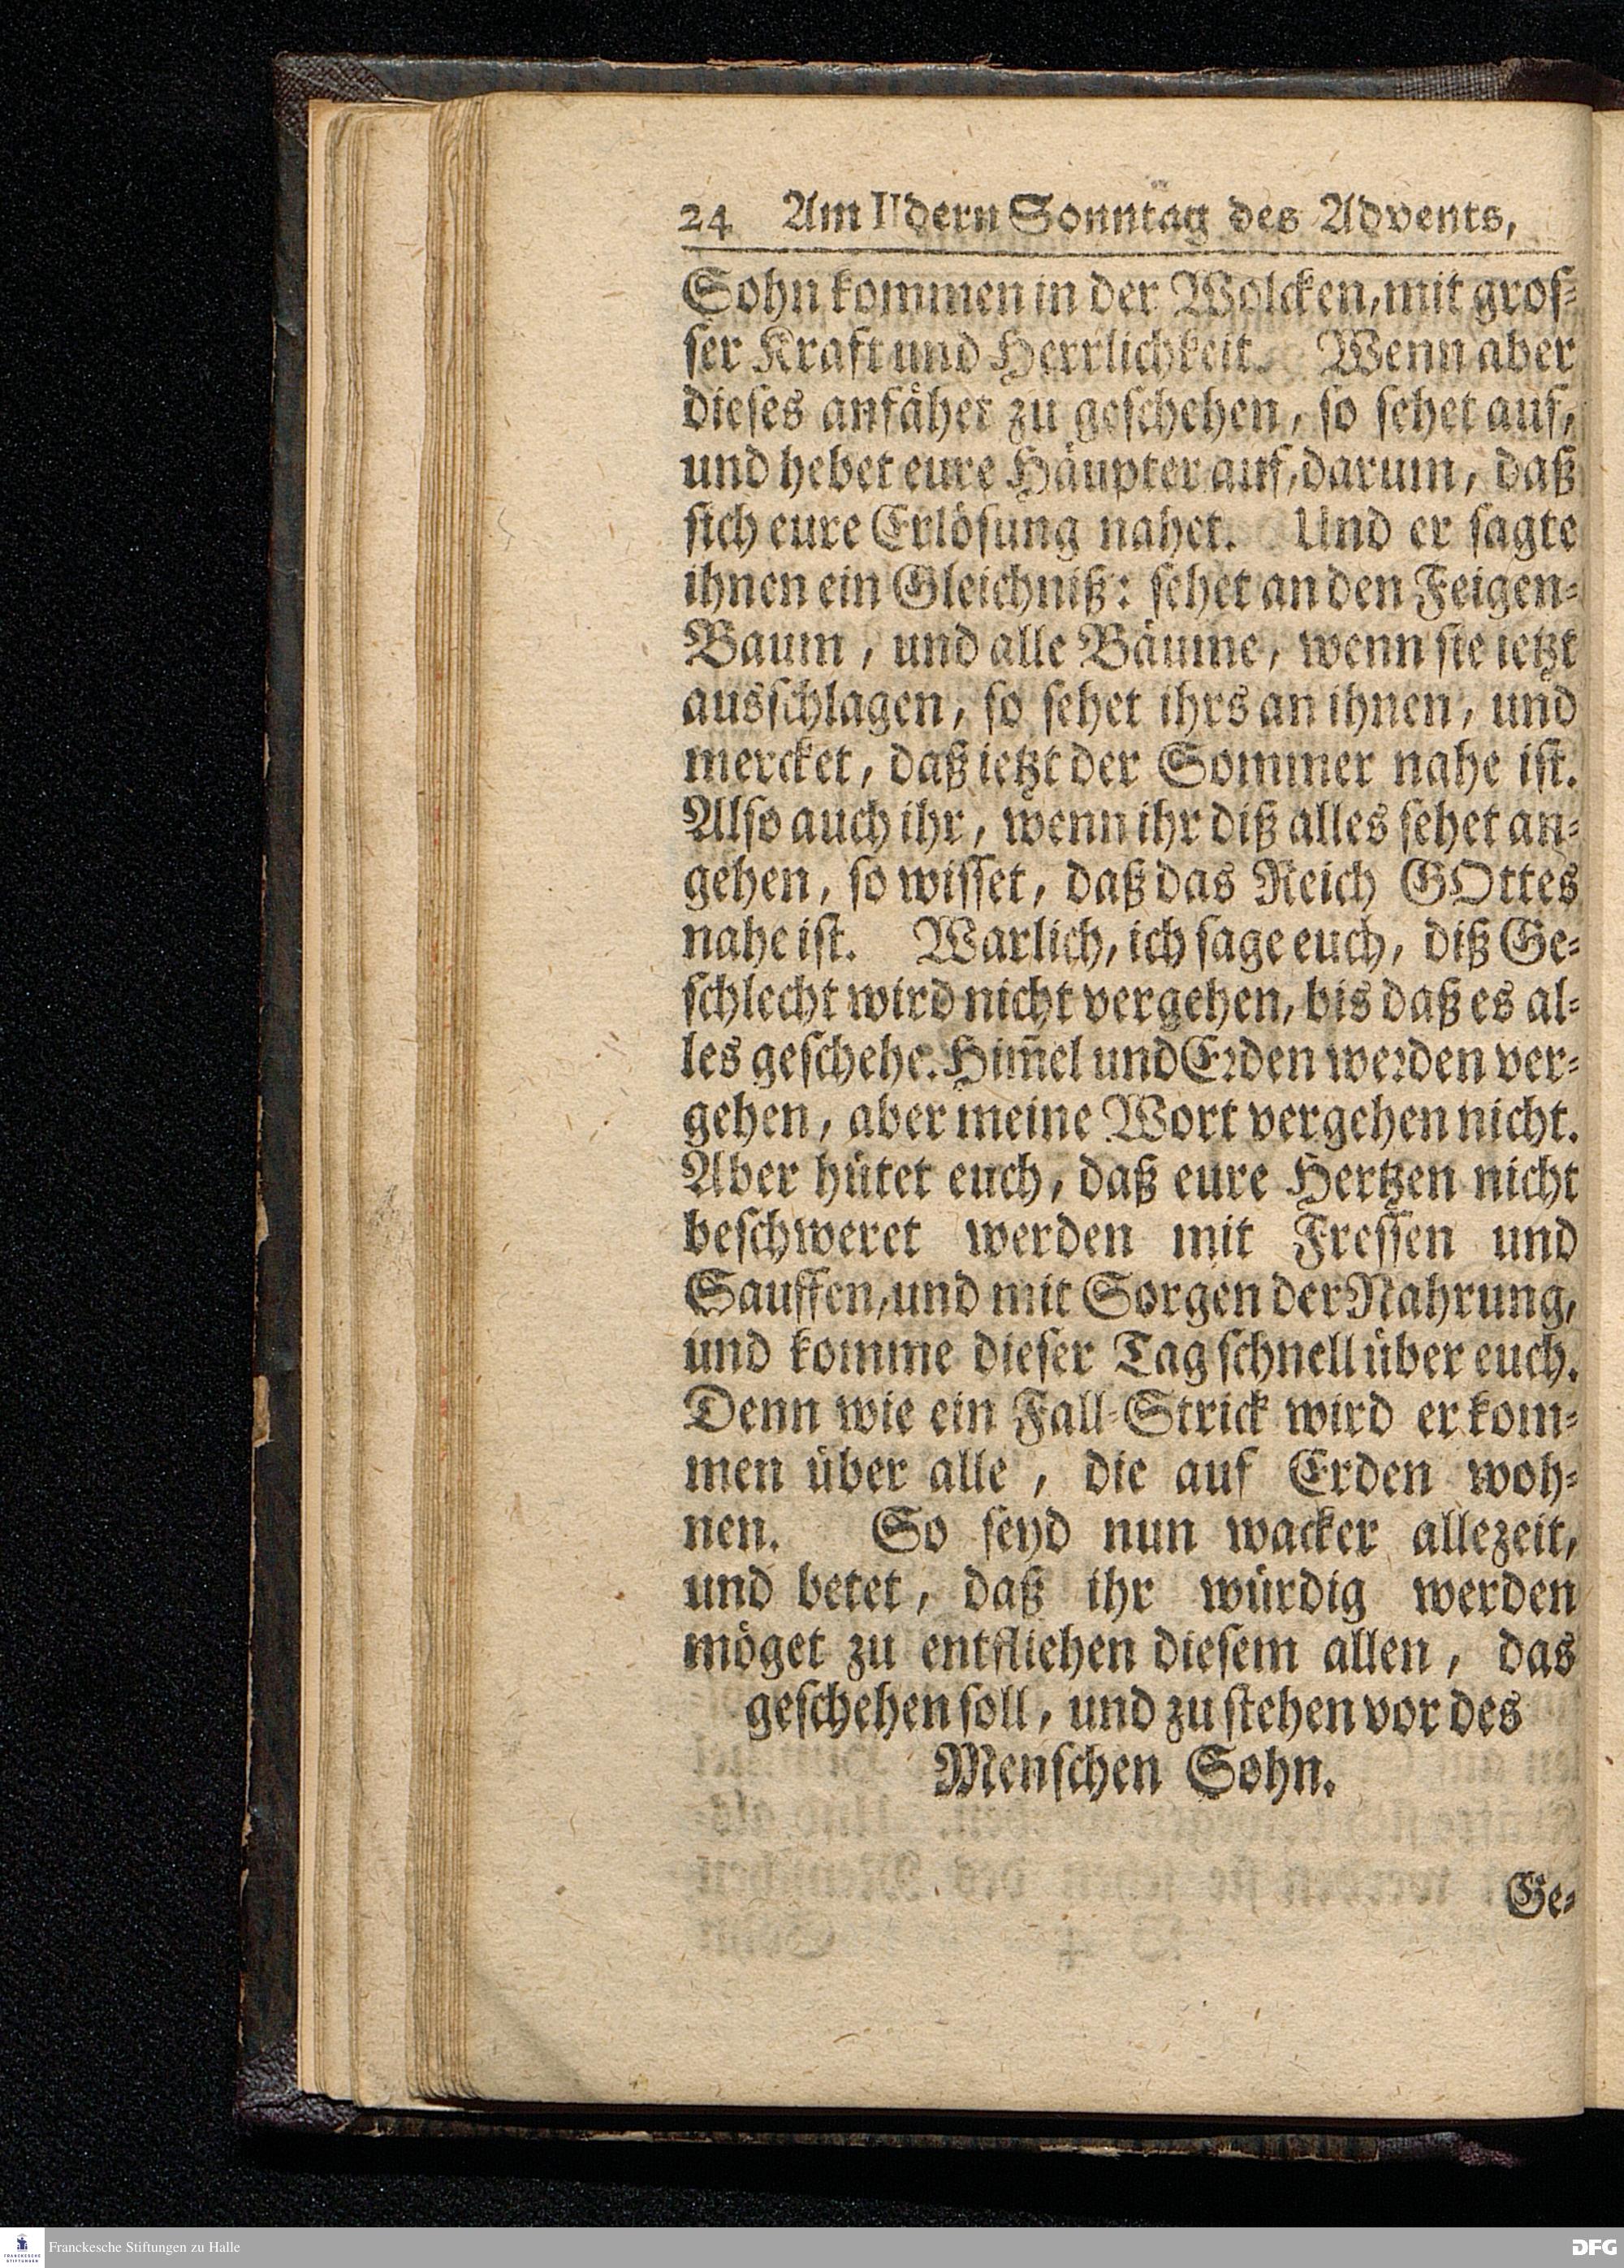 24 Am II dern Sonntag des Advents,
Sohn kommen in der Wolcken, mit gros-
ser Kraft und Herrlichkeit. Wenn aber
dieses anfähet zu geschehen, so sehet auf,
und hebet eure Häupter auf, darum, daß
sich eure Erlösung nahet. Und er sagte
ihnen ein Gleichniß: sehet an den Feigen-
Baum, und alle Bäume, wenn sie ietzt
ausschlagen, so sehet ihrs an ihnen, und
mercket, daß ietzt der Sommer nahe ist.
Also auch ihr, wenn ihr diß alles sehet an-
gehen, so wisset, daß das Reich GOttes
nahe ist. Warlich, ich sage euch, diß Ge-
schlecht wird nicht vergehen, bis daß es al-
les geschehe. Him̃el und Erden werden ver-
gehen, aber meine Wort vergehen nicht.
Aber hütet euch, daß eure Hertzen nicht
beschweret werden mit Fressen und
Sauffen, und mit Sorgen der Nahrung,
und komme dieser Tag schnell über euch.
Denn wie ein Fall-Strick wird er kom-
men über alle, die auf Erden woh-
nen. So seyd nun wacker allezeit,
und betet, daß ihr würdig werden
möget zu entfliehen diesem allen, das
geschehen soll, und zu stehen vor des
Menschen Sohn.
Ge-
FRANCKESCHE STIFTUNGEN
Franckesche Stiftungen zu Halle
DFG